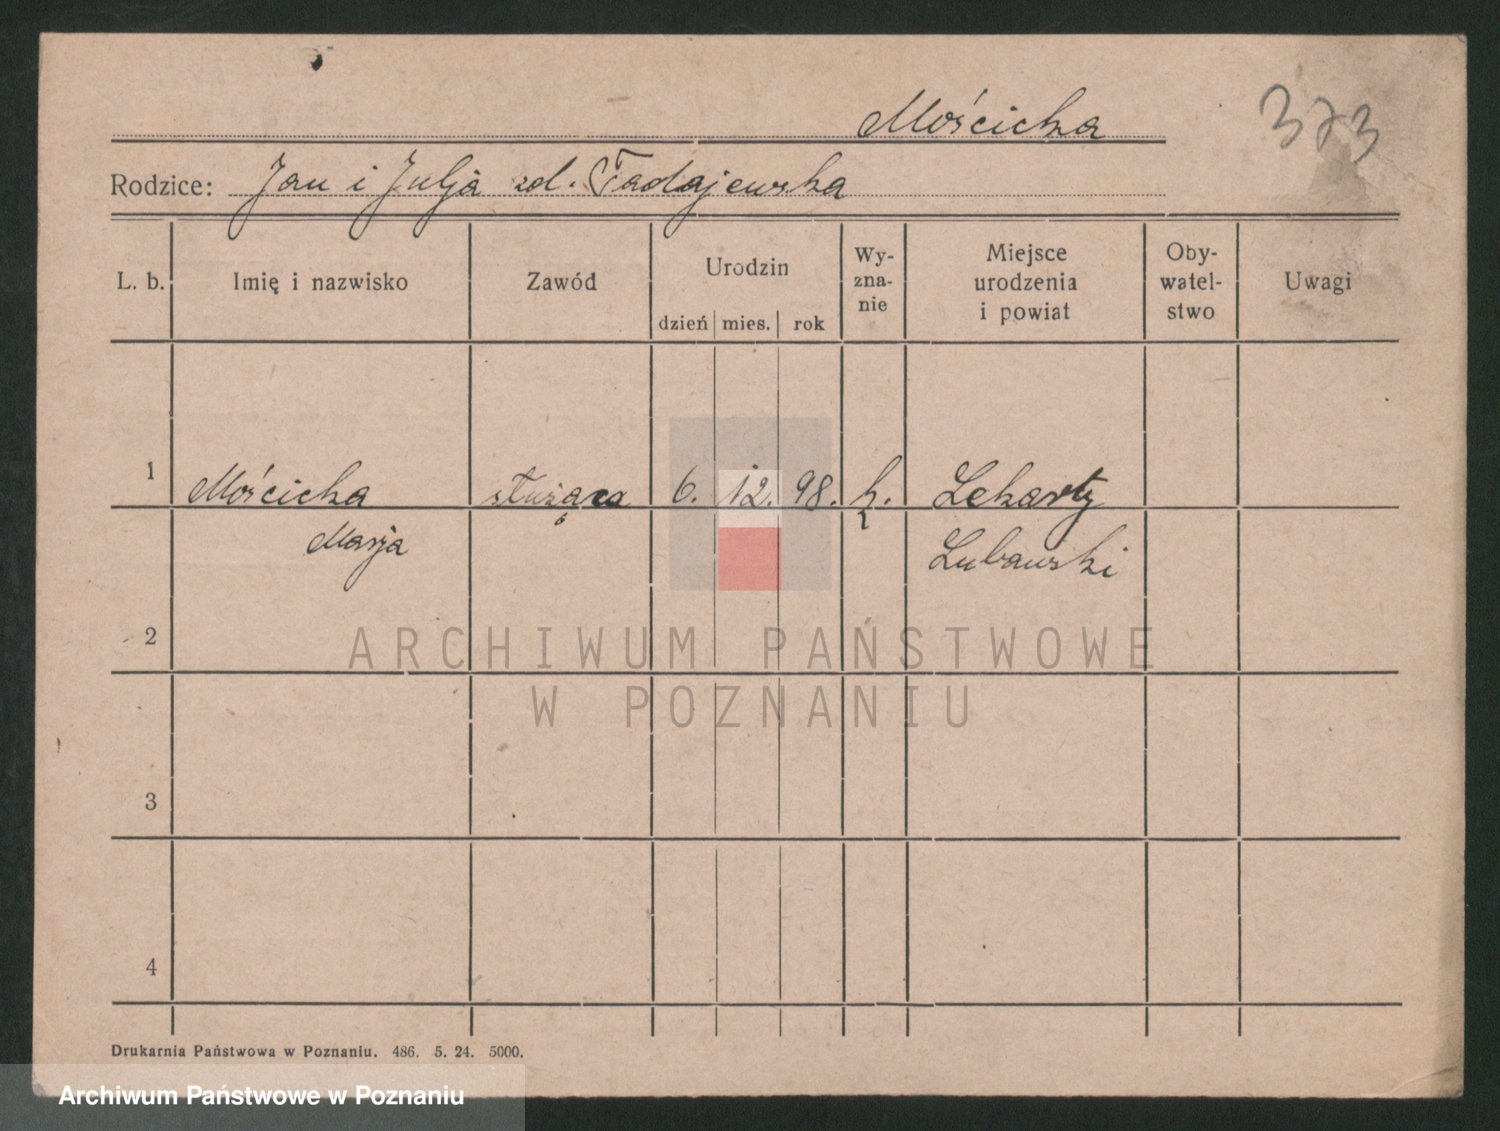 Mościcka
373
Rodzice: Jan i Julja zd. Fadajewska
L. b.
Imię i nazwisko
Zawód
Urodzin
dzień mies. rok
Wy-
zna-
nie
Miejsce
urodzenia
i powiat
Oby-
watel-
stwo
Uwagi
1 Mościcka służąca 6. 12. 98. k. Lekarty
Marja Lubawski
2
ARCHIWUM PAŃSTWOWE
W POZNANIU
3
4
Drukarnia Państwowa w Poznaniu. 486. 5. 24. 5000.
Archiwum Państwowe w Poznaniu